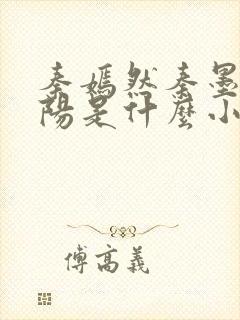 秦嫣然秦墨
陽是什麼小
傅高義